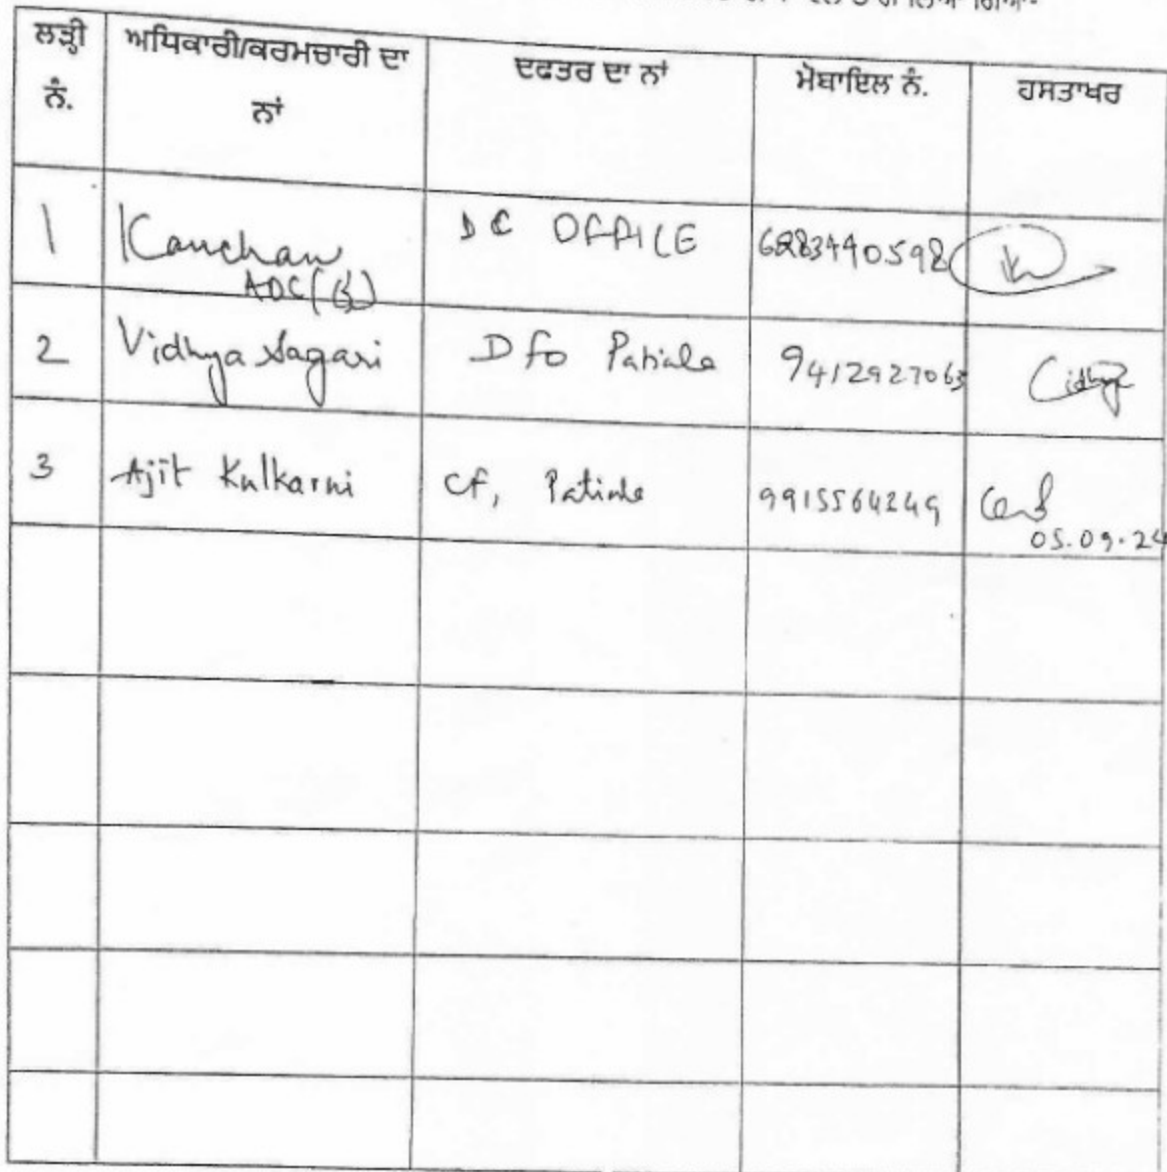 ਲੜੀ ਨੰ. ਅਧਿਕਾਰੀ/ਕਰਮਚਾਰੀ ਦਾ ਨਾਂ ਦਫਤਰ ਦਾ ਨਾਂ ਮੋਬਾਇਲ ਨੰ. ਹਸਤਾਖਰ
1 Kanchan DC OFFICE 6283440598
ADC
2 Vidhya Sagari DFO Patiala 9412927063
3 Ajit Kulkarni CF, Patiala 9915564249
05.09.24